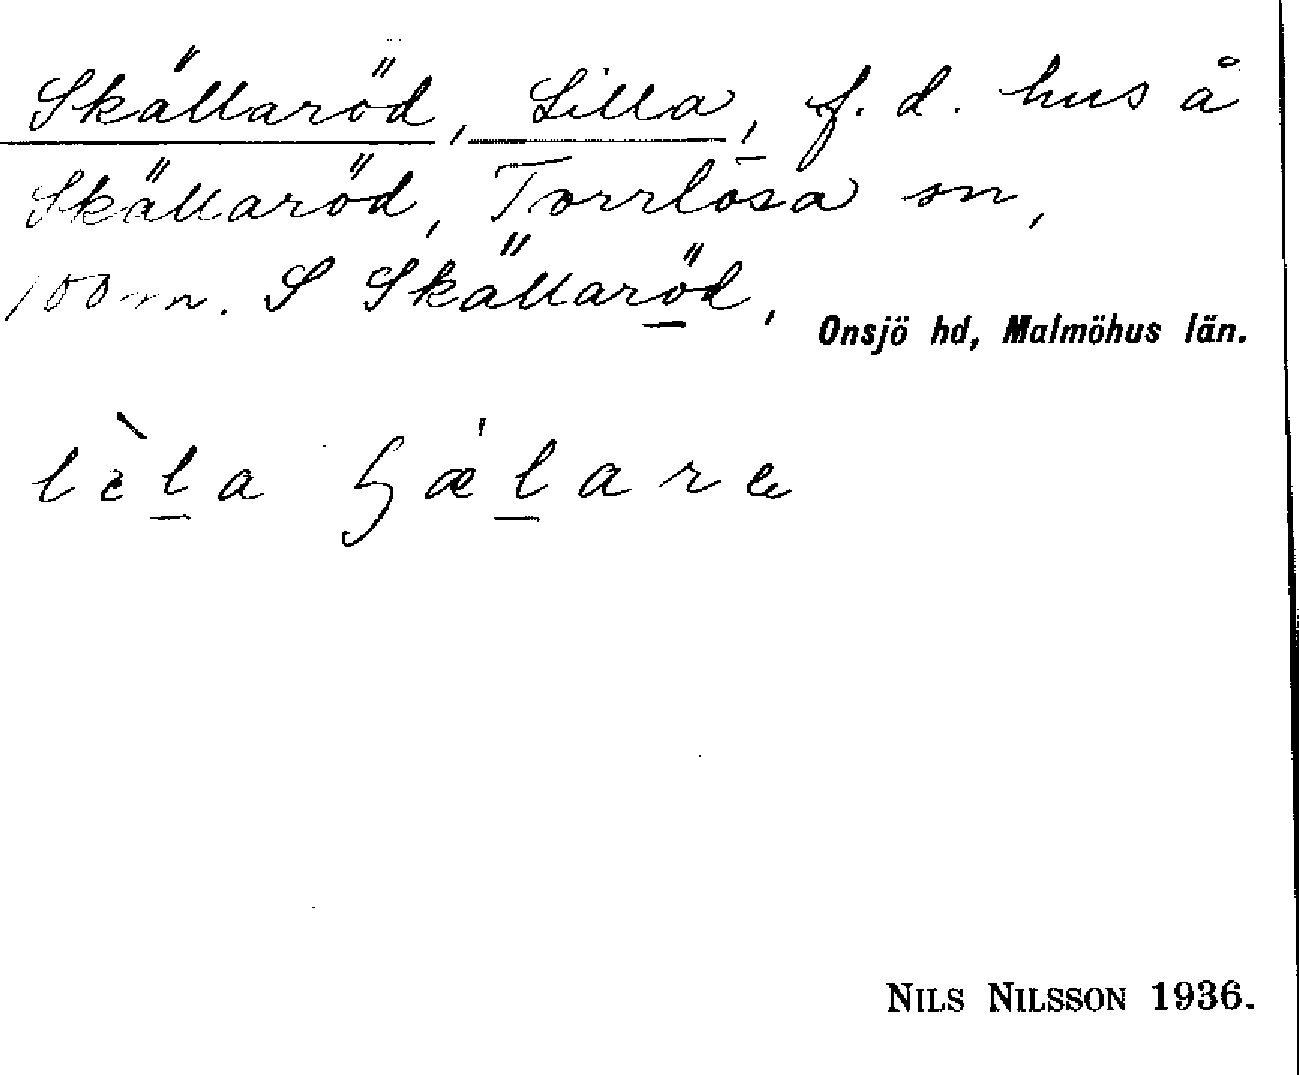 Skällaröd, Lilla, f. d. hus å
Skällaröd, Torrlösa sn,
100 m. S Skällaröd,
Onsjö hd, Malmöhus län.
NILS NILSSON 1936.